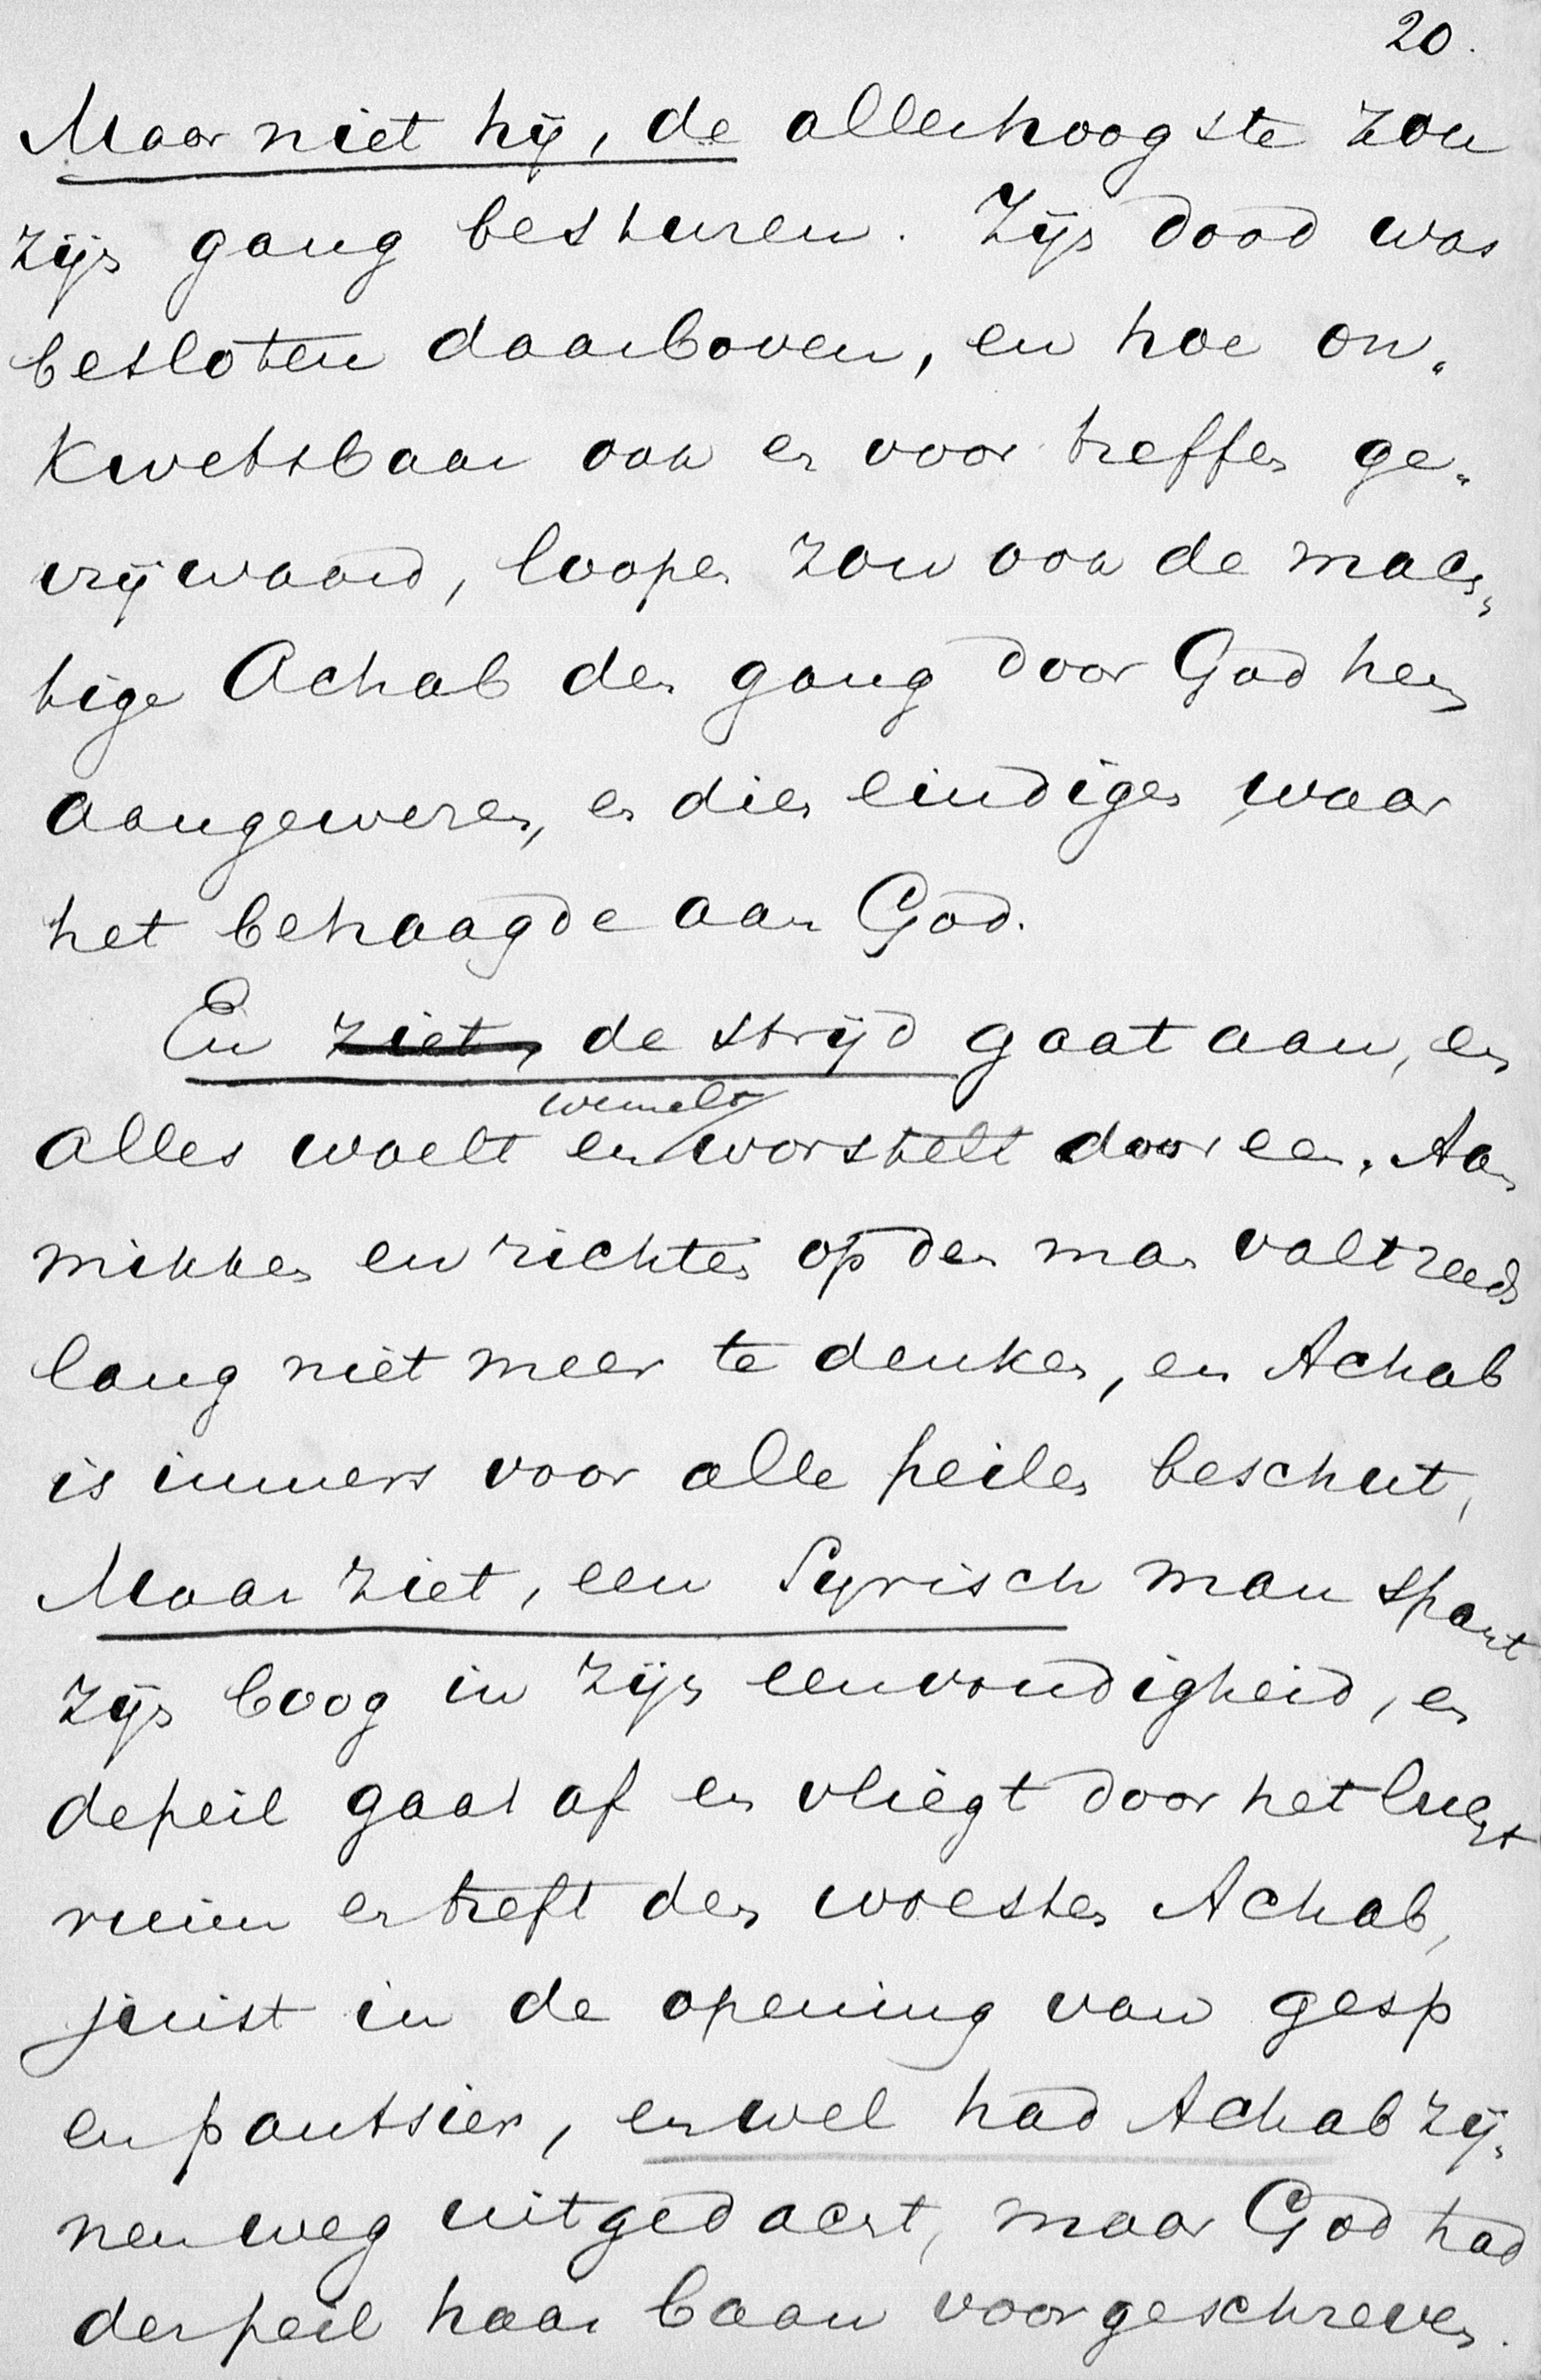 20.
Maar niet hij, de allerhoogste zou
zijn gang besturen. Zijn dood was
besloten daarboven, en hoe on„
kwetsbaar ook en voor treffen ge„
vrijwaard, loopen zou ook de mach„
tige Achab den gang door God hem
aangewezen, en dien eindigen waar
het behaagde aan God.
En ziet, de strijd gaat aan, en
wemelt
alles woelt en worstelt dooreen. Aan
mikken en richten op den man valt reeds
lang niet meer te denken, en Achab
is immers voor alle peilen beschut,
Maar ziet, een Syrisch man spant
zijn boog in zijn eenvoudigheid, en
de peil gaat af en vliegt door het lucht
ruim en treft den woesten Achab,
juist in de opening van gesp
en pantsier, en wel had Achab zij„
nen weg uitgedacht, maar God had
der peil haar baan voorgeschreven.